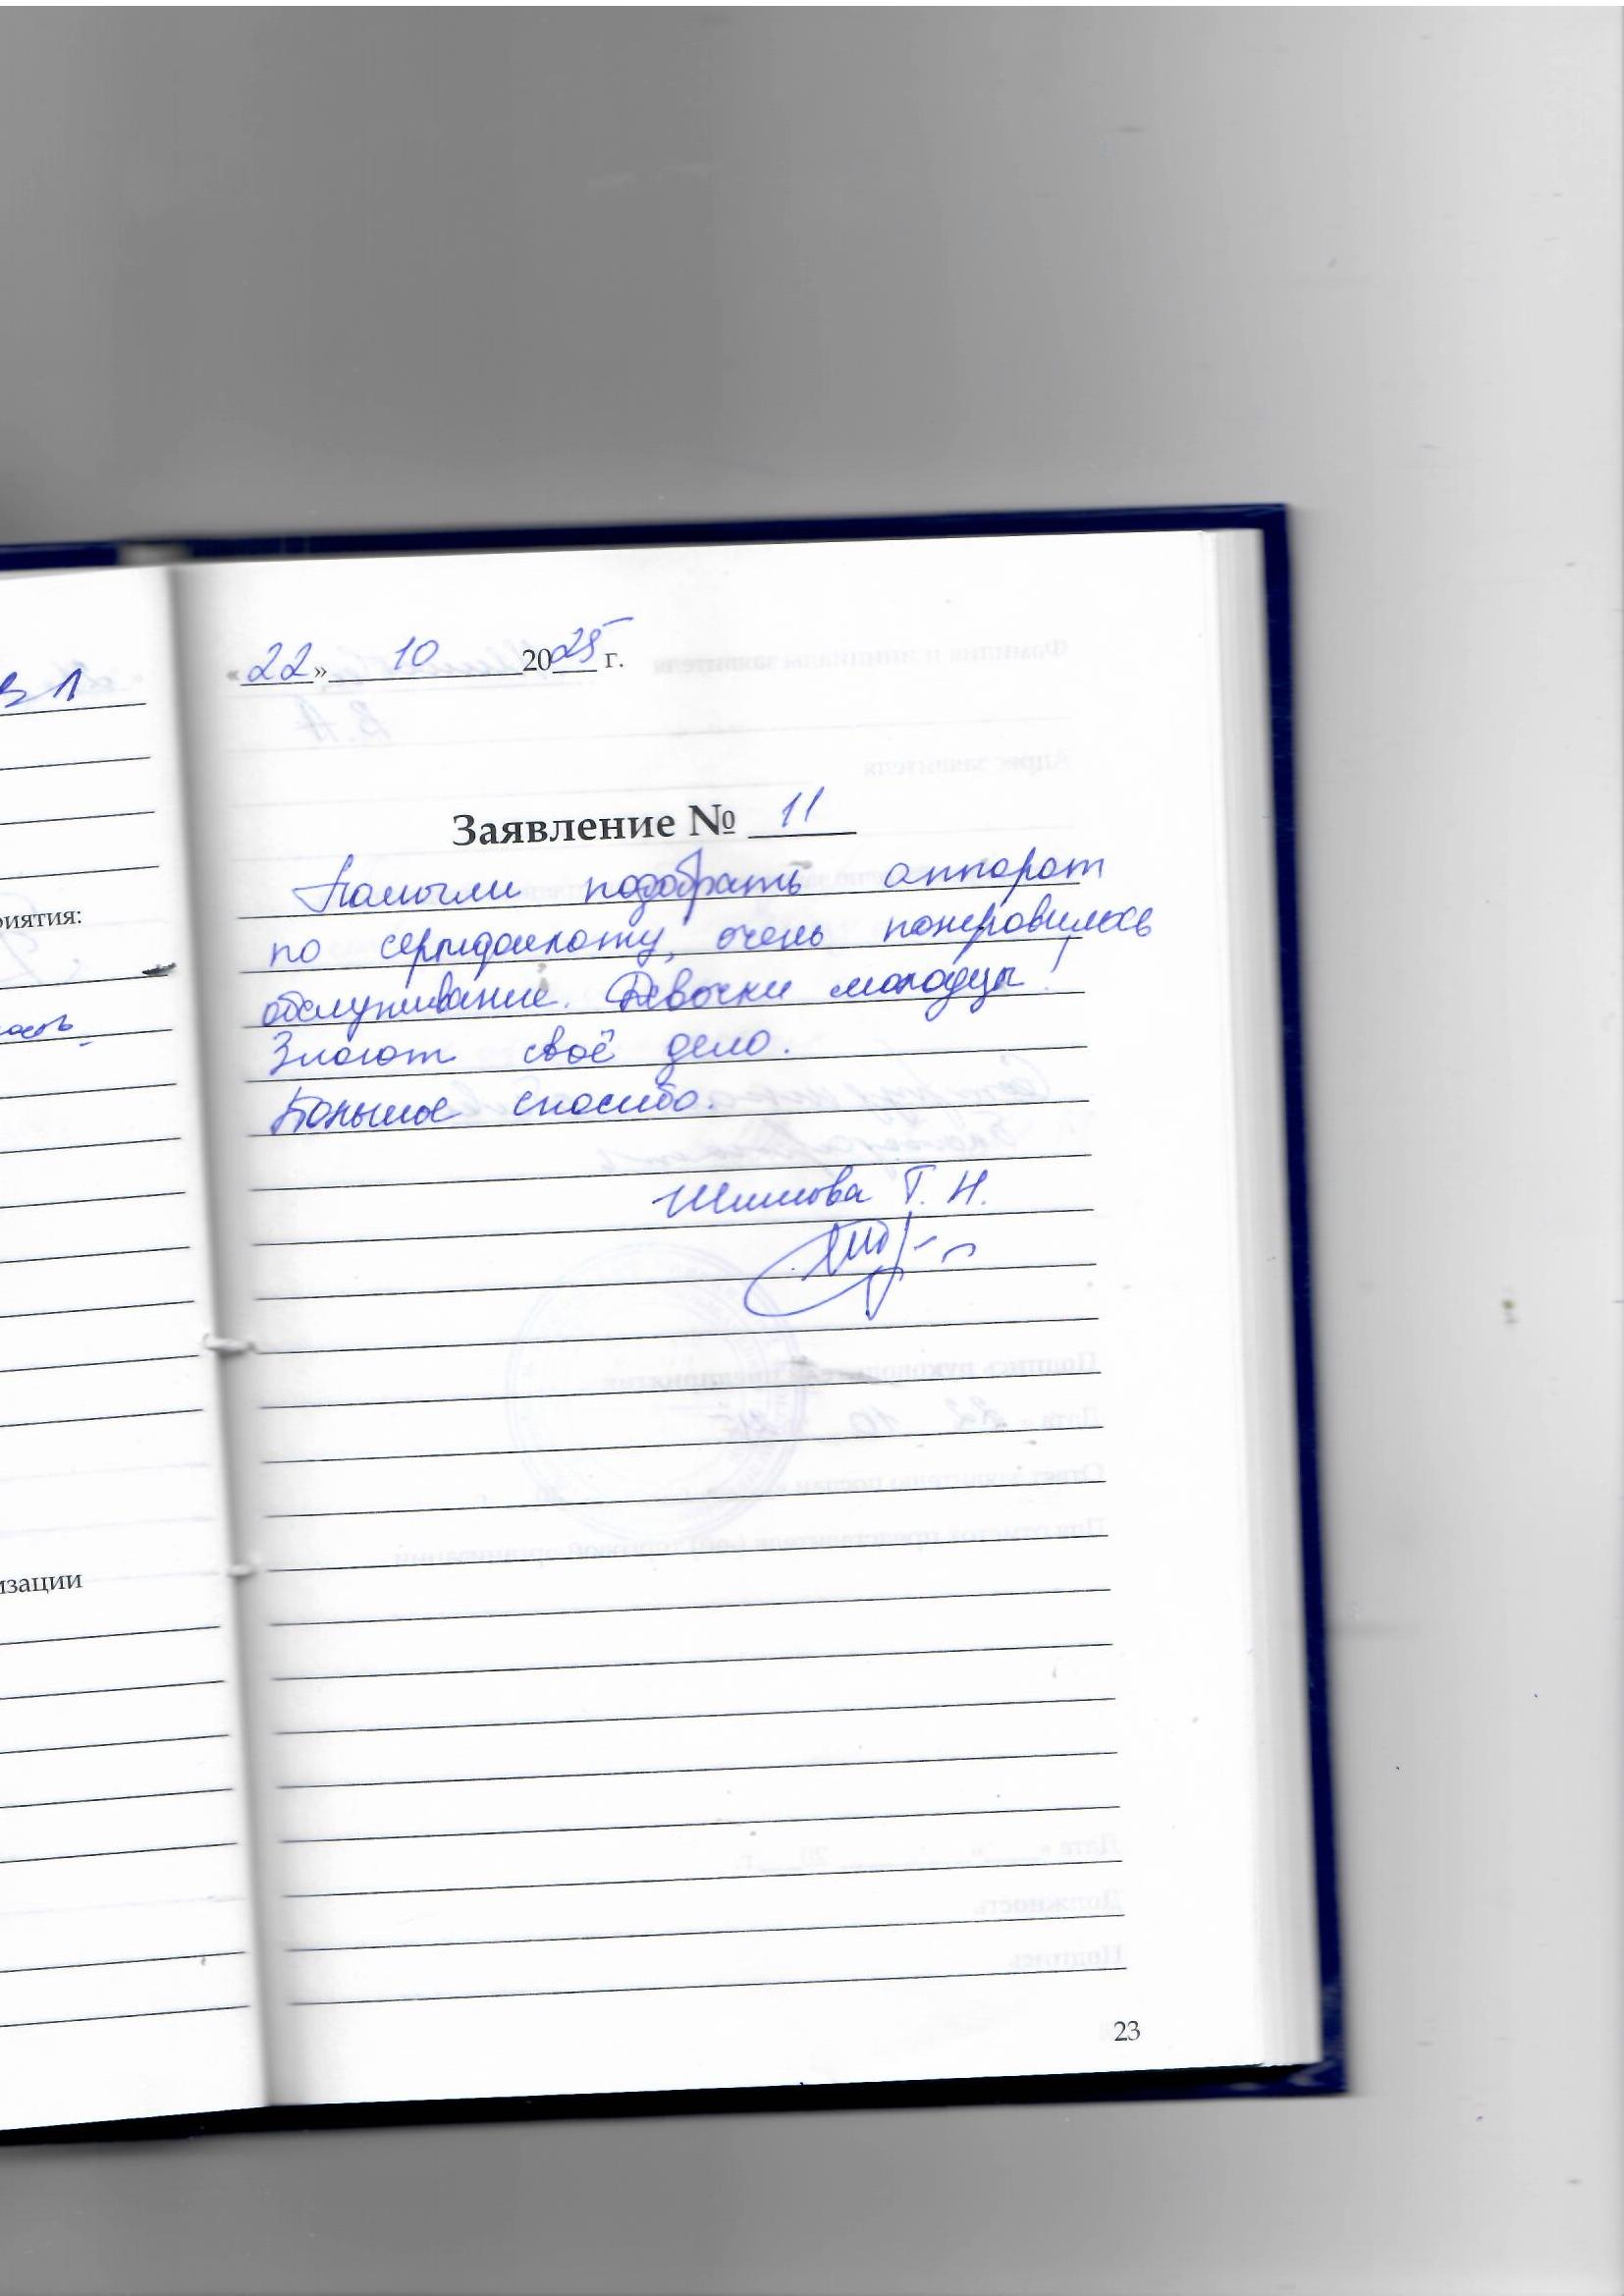 «22» 10 2025 г.
Заявление № 11
Помогли подобрать аппарат
по сертификату, очень понравилось
обслуживание. Девочки молодцы!
Знают своё дело.
Большое спасибо.
Шишова Т. Н.
риятия:
изации
23